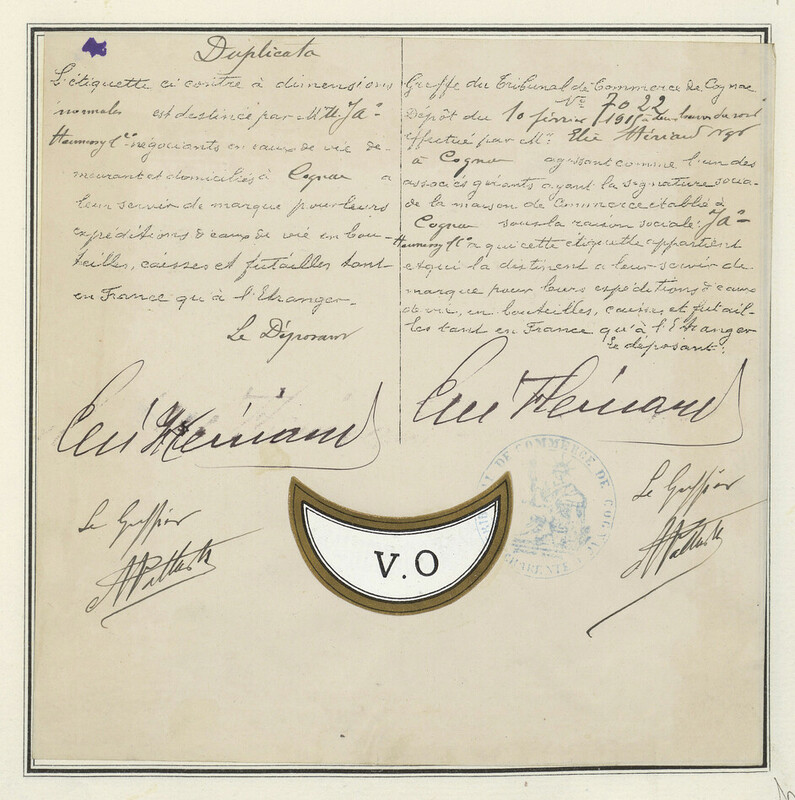 Duplicata
L'étiquette ci contre à dimensions
normales est destinée par MM. Jas
Hennessy & Cie négociants en eaux de vie de-
meurant et domiciliés à Cognac a
leur servir de marque pour leurs
expéditions d'eaux de vie en bou-
teilles, caisses et futailles tant
en France qu'à l'Etranger.
Le Déposant
Le Greffier
Greffe du Tribunal de Commerce de Cognac
No 7022
Dépôt du 10 février
effectué par Mr. Elie
à Cognac agissant comme l'un des
associés gérants ayant la signature socia-
de la maison de Commerce établie à
Cognac sous la raison sociale: Jas
Hennessy & Cie à qui cette étiquette appartient
et qui la destinent a leur servir de
marque pour leurs expéditions d'eaux
de vie, en bouteilles, caisses et futail-
les tand en France qu'à l'Etranger
le déposant:
Le Greffier
DE COMMERCE DE COGNAC
CHARENTE
V.O